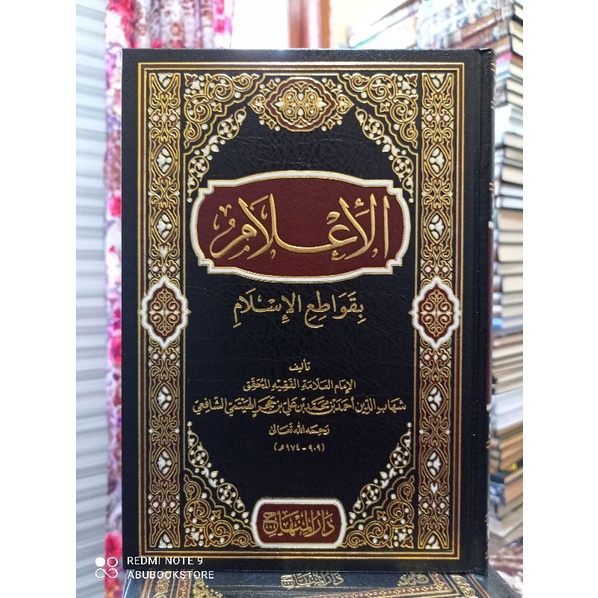 الأعلام
بقواطع الإسلام
تأليف
الإمام العلامة الفقيه المحقق
شهاب الدين أحمد بن محمد بن علي بن حجر الهيتمي الشافعي
رحمه الله تعالى
(٩٠٩ - ٩٧٤ هـ)
دار المنهاج
REDMI NOTE 9
ABUBOOKSTORE
دار المنهاج